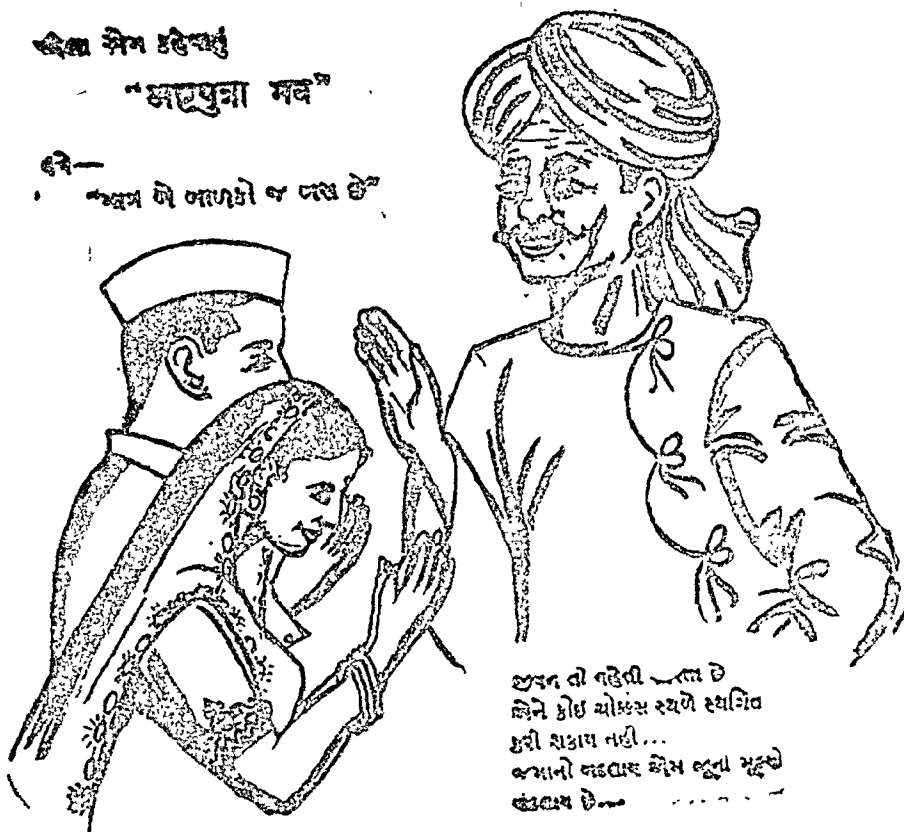 પહેલા એમ કહેવાતું
“અષ્ટપુત્રા ભવ”
હવે—
“માત્ર બે બાળકો જ બસ છે”
જીવન તો વહેતી છે
એને કોઇ ચોક્કસ સ્થળે સ્થગિત
કરી શકાય નહી...
જમાનો બદલાય એમ જૂના મૂલ્યો
બદલાય છે....